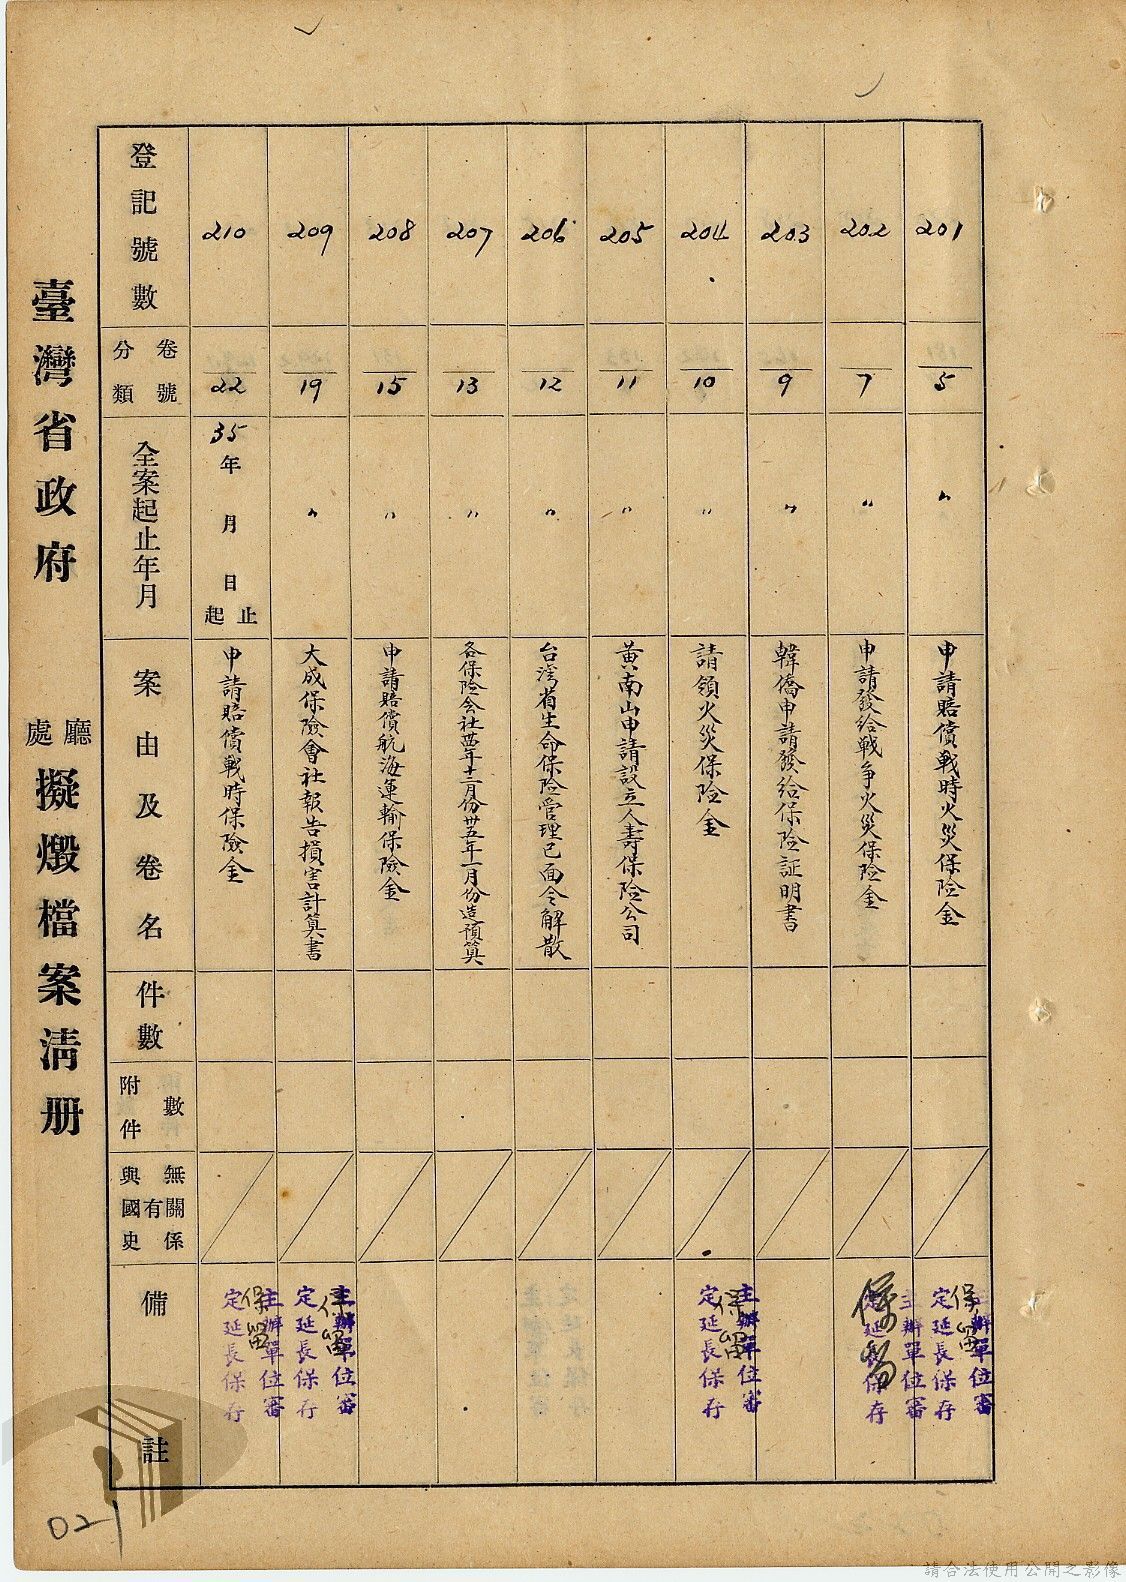 臺灣省政府
廳
處
擬燬檔案淸册
登記號數
卷號
分類
全案起止年月
案由及卷名
件數
附件
數
與國史
有
無關係
備註
201
5
〃
申請賠償戰時火災保險金
保留
主辦單位審
定延長保存
202
7
〃
申請發給戰爭火災保險金
保留
主辦單位審
定延長保存
203
9
〃
韓僑申請發給保險証明書
204
10
〃
請領火災保險金
保留
主辦單位審
定延長保存
205
11
〃
黃南山申請設立人壽保險公司
206
12
〃
台灣省生命保險管理已面令解散
207
13
〃
各保險会社卅四年十二月份卅五年一月份造預算
208
15
〃
申請賠償航海運輸保險金
209
19
〃
大成保險會社報告損害計算書
保留
主辦單位審
定延長保存
210
22
35年 月 日
起
止
申請賠償戰時保險金
保留
主辦單位審
定延長保存
021
請合法使用公開之影像